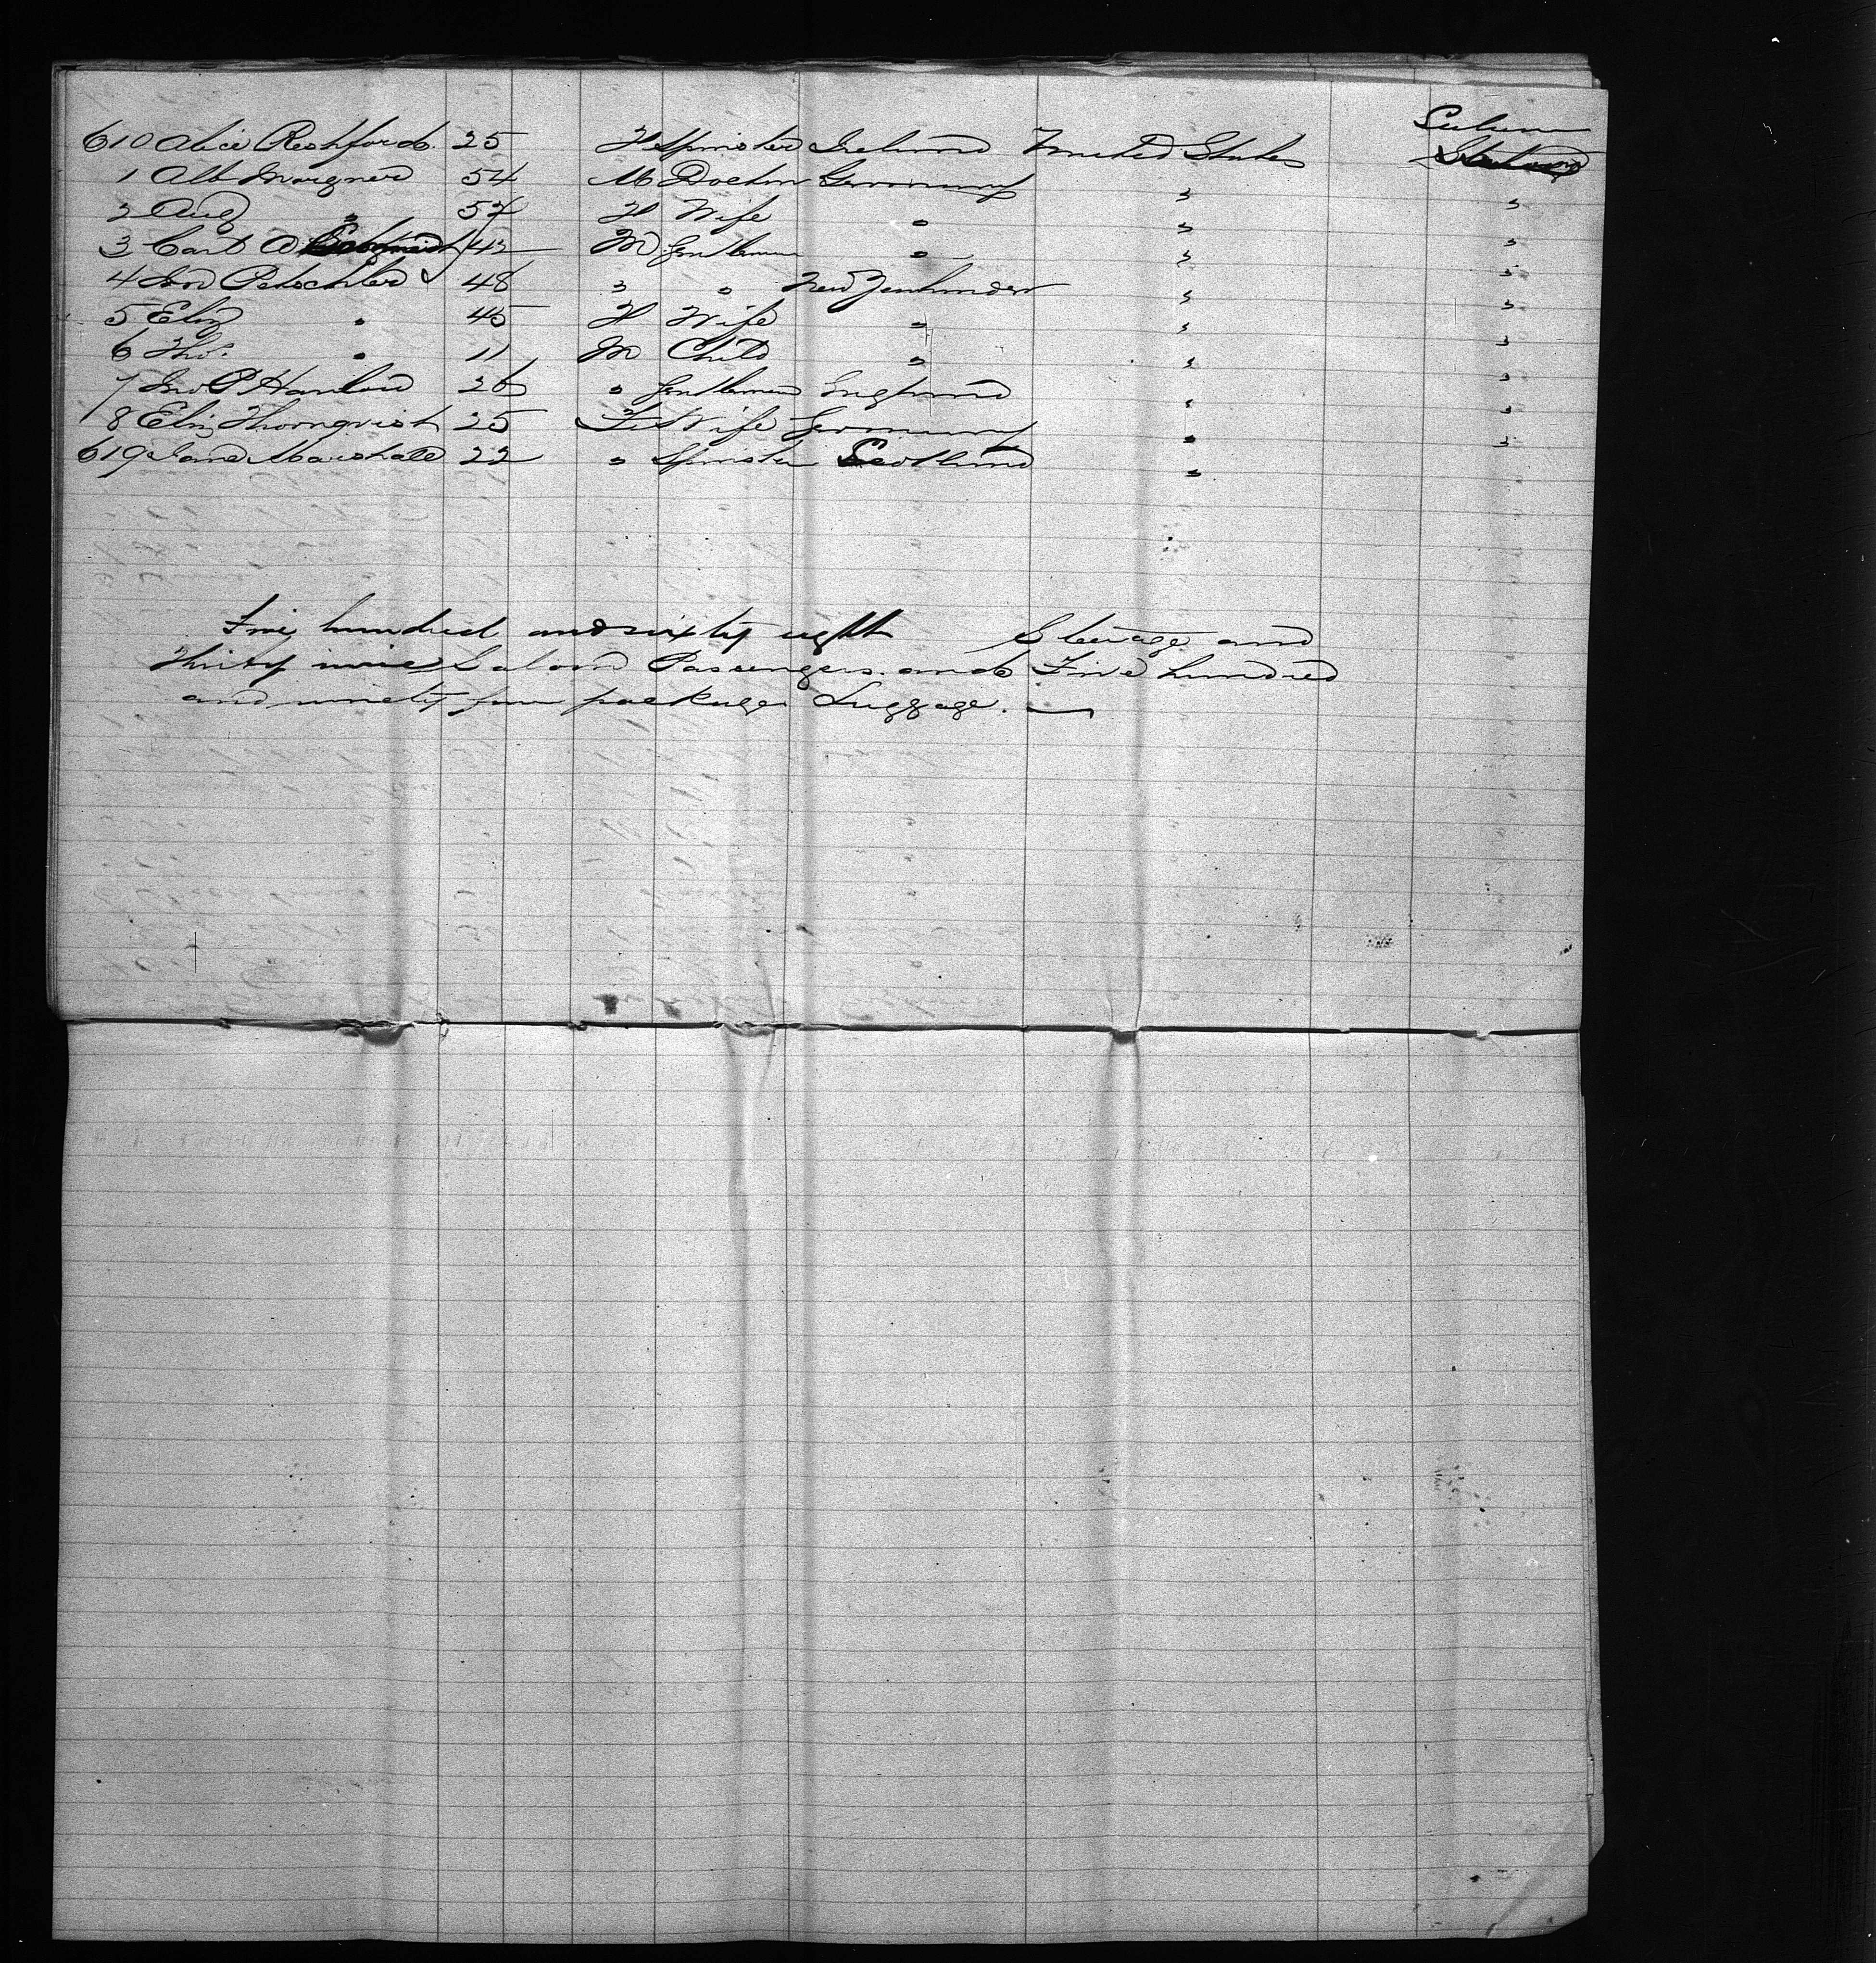 Saloon
610 Alice Rochford 25 F Spinster Ireland United States
1 Alb Wargner 54 M Doctor Germany " "
2 Aug " 52 F Wife " " "
3 Carl 42 M Gentleman " " "
4 Jno 48 " " New Zealander " "
5 Eliz " 45 F Wife " " "
6 Tho. " 11 M Child " " "
7 Jno P Hanlow 26 " Gentleman England " "
8 Eliz Thornqvist 25 F Wife Germany " "
619 Jane Marshall 22 " Spinster Scotland "
Five hundred and sixty eight Steerage and
Thirty nine Saloon Passengers and Five hundred
and ninety four packages Luggage. —